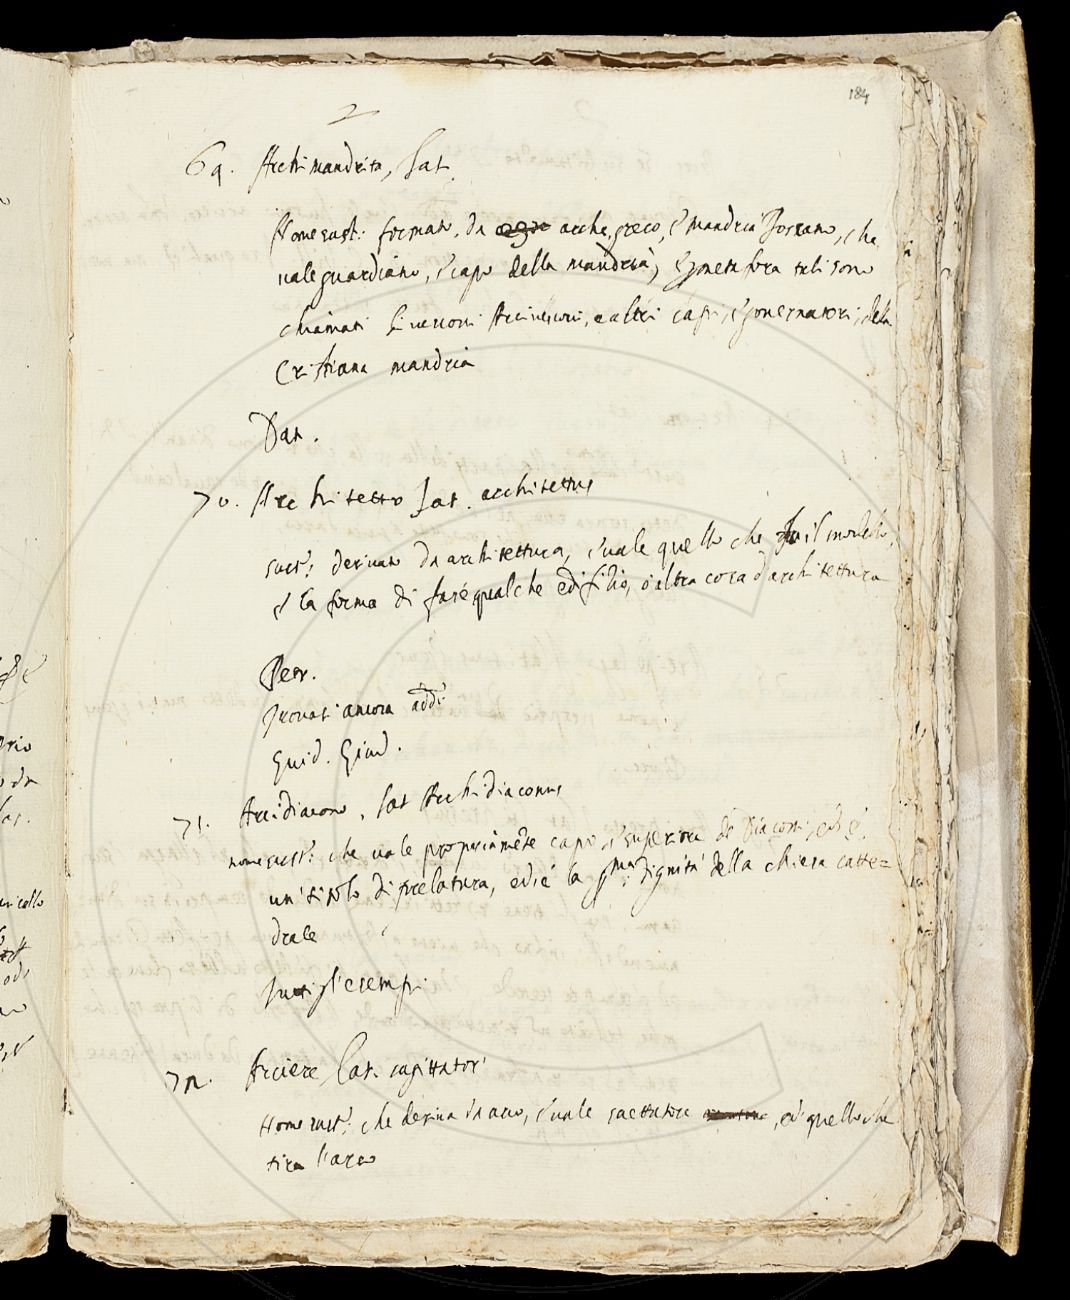 184
2
69. Archimandrita, Lat.
Nome sust: formato, da arche, greco, e mandria Toscano, che
vale guardiano, e capo della mandria, e metafora tali sono
chiamati li vescovi Arcivescovi, e altri capi, e governatori, della
Cristiana mandria
Dan.
70. Architetto Lat. architettus
sust: derivato da architettura, e vale quello che fa il modello,
e la forma di fare qualche edifitio, o altra cosa d'architettura
Petr.
Trovasi ancora add:
Guid. Giud.
71. Arcidiacono, Lat Archidiaconus
nome sust: che vale propriamẽte capo, e superiore de Diaconi, ed è
un titolo di prelatura, ed è la pma dignità della chiesa catte=
drale
Tutti gl'esempi
72. Arciere Lat. sagittator
Nome sust: che deriva da arco, e vale saettatore, è quello che
tira l'arco